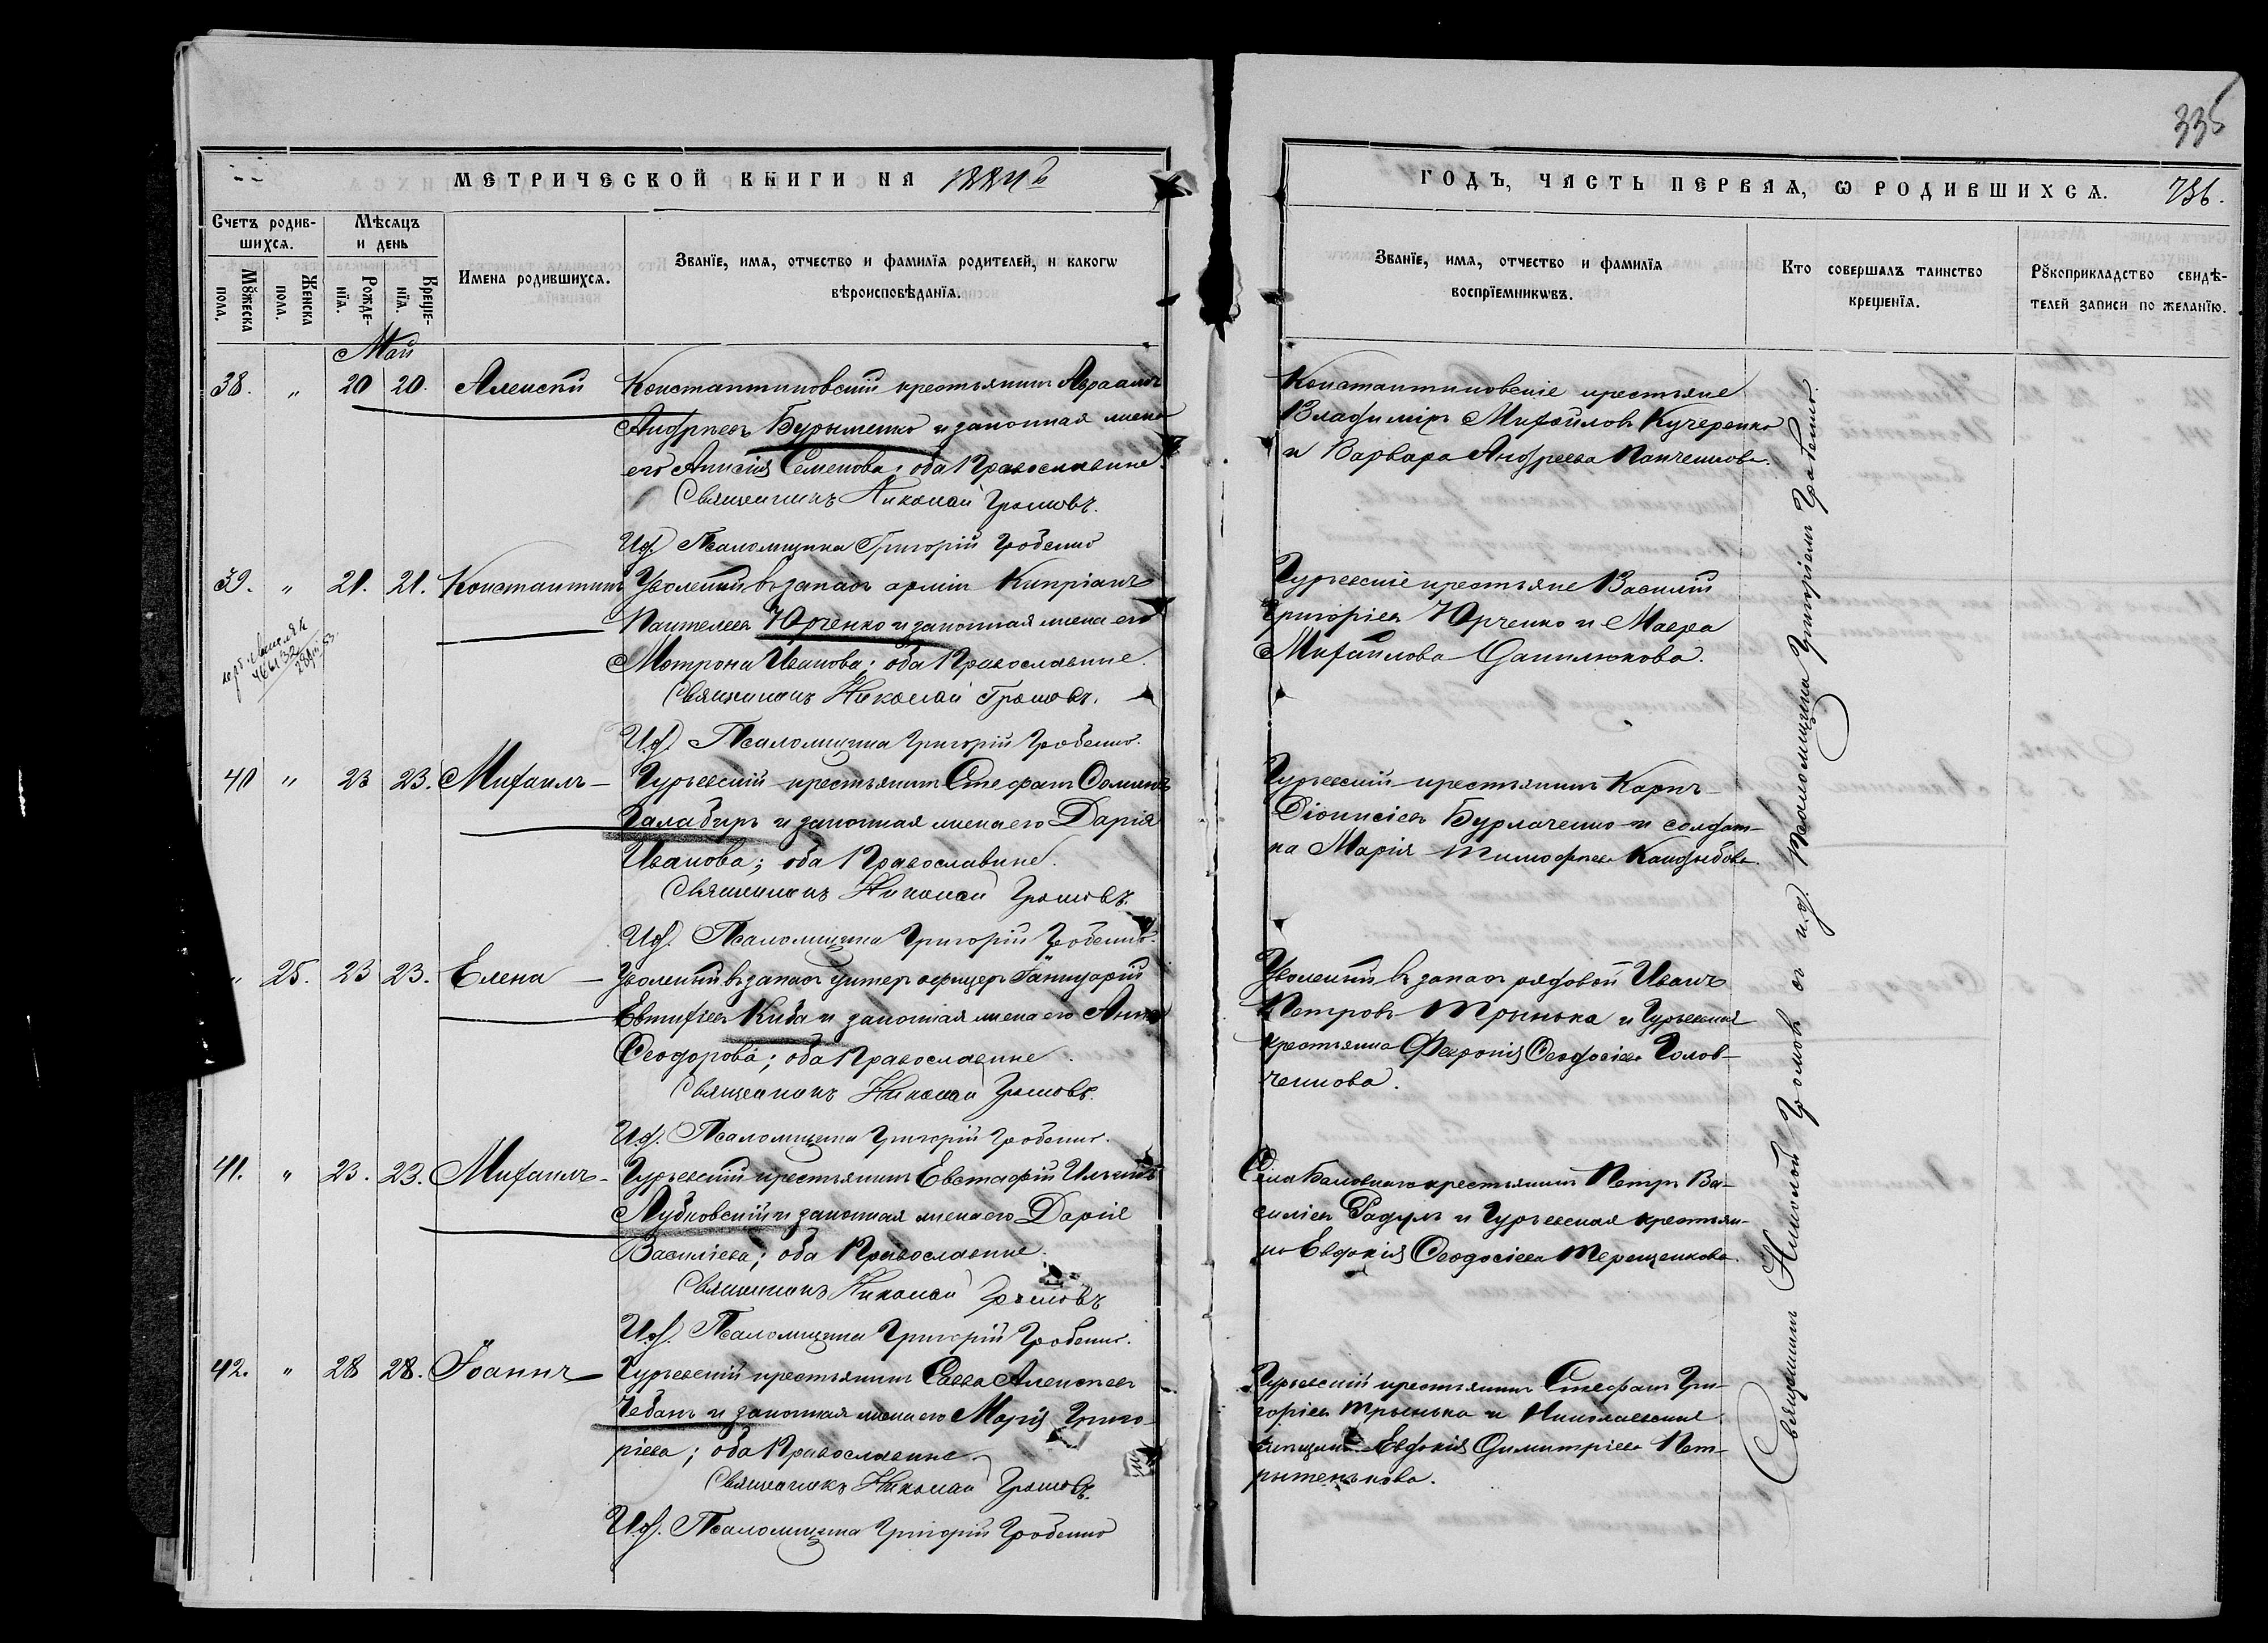 335
МЕТРИЧЕСКОЙ КНИГИ НА
ГОДЪ, ЧАСТЬ ПЕРВАЯ, Ѡ РОДИВШИХСЯ. 736.
Счетъ родив-
шихся.
Мѣсяцъ
и день
Мꙋжеска
пола.
Женска
пола.
Рожде-
нїя.
Креще-
нїя.
Имена родившихся.
Званїе, имя, отчество и фамилїя родителей, и какогѡ
вѣроисповѣданїя.
Званїе, имя, отчество и фамилїя
воспрїемникѡвъ.
Кто совершалъ таинство
крещенїя.
Рꙋкоприкладство свидѣ-
телей записи по желанїю.
Май
38. " 20 20. Алексѣй Константиновскій крестьянинъ Авраамъ
Андреевъ Бурыменко и законная жена
его Анисія Семенова; оба Православные.
Священникъ Николай Громовъ.
И.д. Псаломщика Григорій Гробенко
Константиновскіе крестьяне
Владиміръ Михайловъ Кучеренко
и Варвара Андреева Панченкова.
39. " 21. 21. Константинъ Уволенный въ запасъ арміи Кипріанъ
Пантелеевъ Юрченко и законная жена его
Мотрона Иванова; оба Православные.
Священникъ Николай Громовъ.
И.д. Псаломщика Григорій Гробенко.
Гурьевскіе крестьяне Василій
Григоріевъ Юрченко и Мавра
Михайлова Данилюкова.
40 " 23 23. Михаилъ Гурьевскій крестьянинъ Стефанъ Фоминъ
Балабиръ и законная жена его Дарія
Иванова; оба Православные.
Священникъ Николай Громовъ.
И.д. Псаломщика Григорій Гробенко.
Гурьевскій крестьянинъ Карпъ
Діонисіевъ Бурлаченко и солдат-
ка Марія Тимофеева Кандыбова.
" 25. 23 23. Елена Уволенный въ запасъ унтеръ офицеръ Іаннуарій
Евтихіевъ Киба и законная жена его Анна
Ѳеодорова; оба Православные.
Священникъ Николай Громовъ.
И.д. Псаломщика Григорій Гробенко.
Уволенный въ запасъ рядовой Иванъ
Петровъ Трынька и Гурьевская
крестьянка Февронія Ѳеодосіева Голов-
ченкова.
41. " 23. 23. Михаилъ Гурьевскій крестьянинъ Евстафій Ильинъ
Лубковскій и законная жена его Дарія
Василіева; оба Православные.
Священникъ Николай Громовъ
И.д. Псаломщика Григорій Гробенко.
Села Баловнаго крестьянинъ Петръ Ва-
силіевъ Радулъ и Гурьевская крестьян-
ка Евдокія Ѳеодосіева Терещенкова.
42. " 28 28. Іоаннъ Гурьевскій крестьянинъ Савва Алексеевъ
Чебанъ и законная жена его Марія Григо-
ріева; оба Православные
Священникъ Николай Громовъ.
И.д. Псаломщика Григорій Гробенко
Гурьевскій крестьянинъ Стефанъ Гри-
горіевъ Трынька и Николаевская
Евдокія Димитріева Пет-
Священникъ Николай Громовъ съ и.д. Псаломщика Григоріемъ Гробенко.